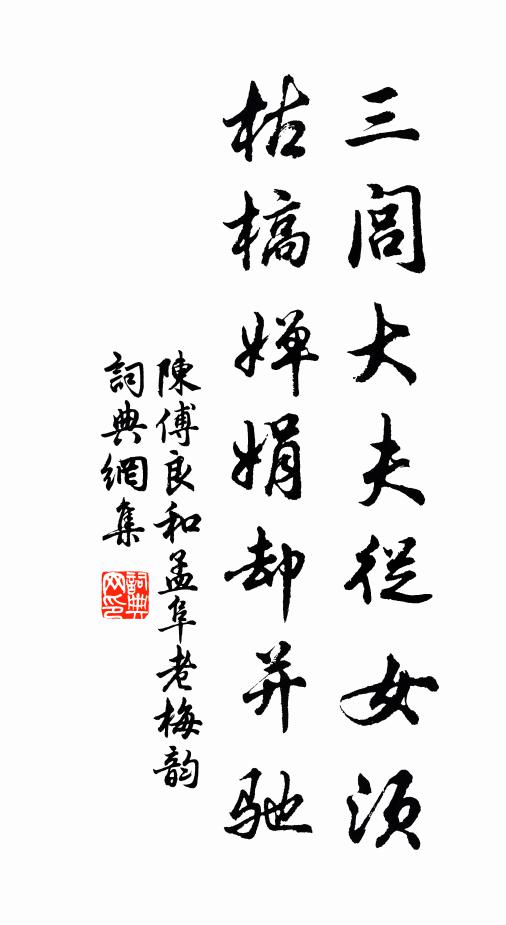 三閭大夫從女須
枯槁嬋娟却并馳
陳傅良和孟阜老梅韵
詞典網集
詞典网印